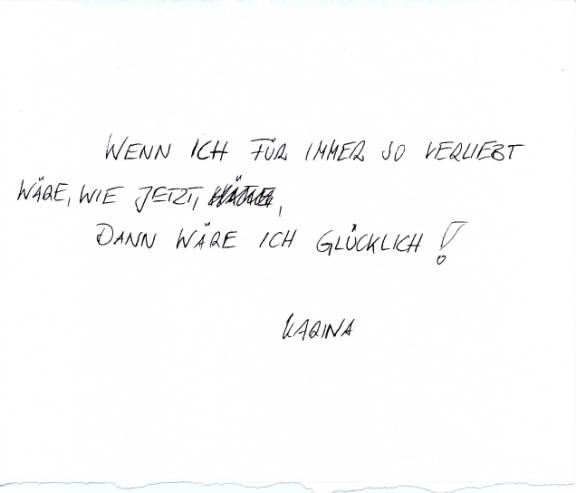 WENN ICH FÜR IMMER SO VERLIEBT
WÄRE, WIE JETZT, ,
DANN WÄRE ICH GLÜCKLICH!
KARINA